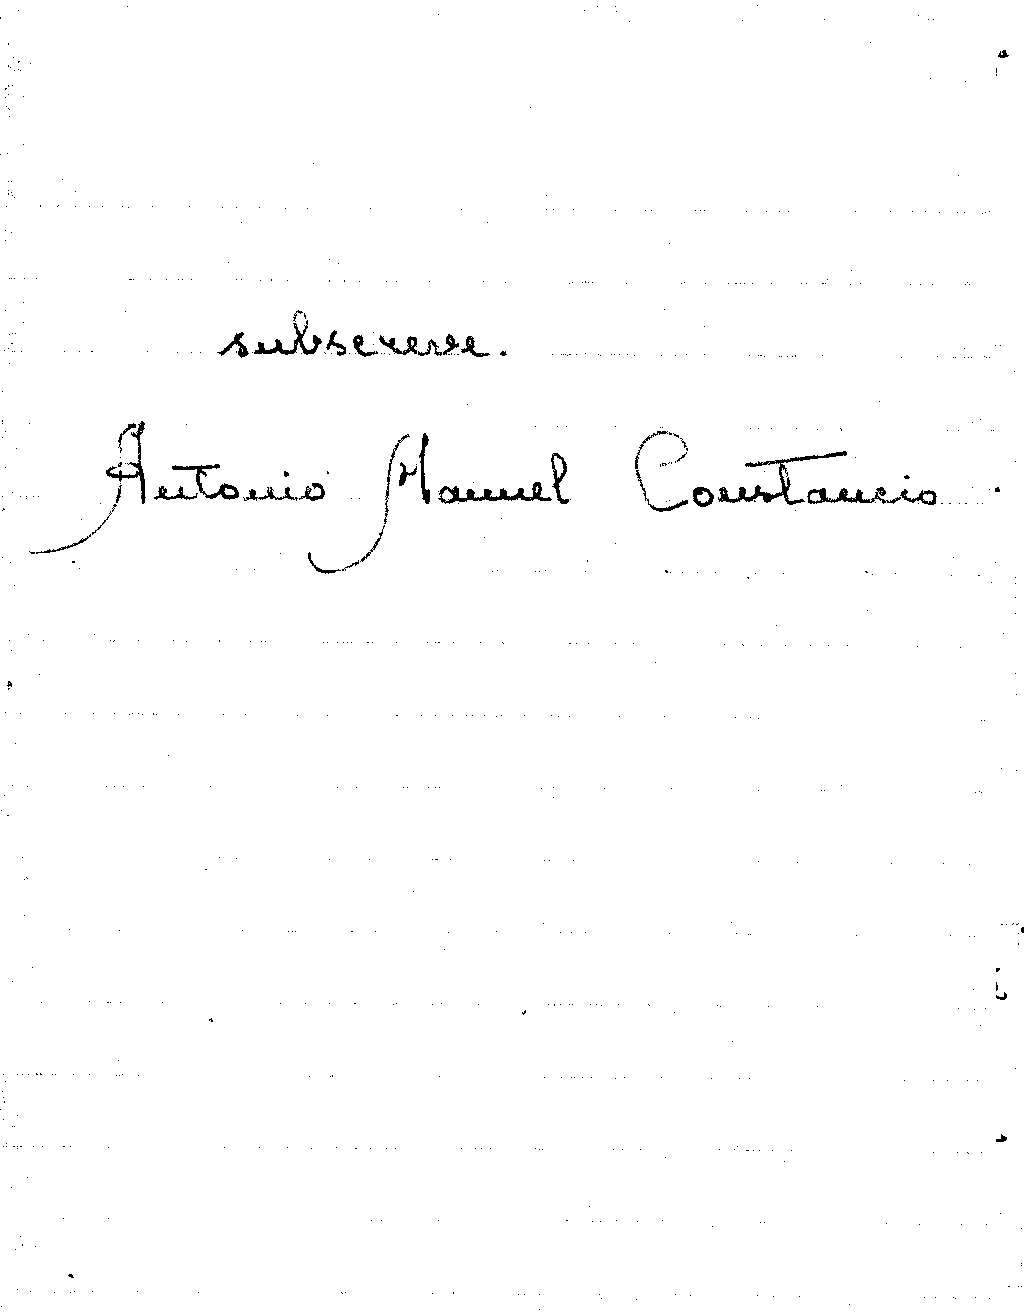 subscreve.
Antonio Manuel Constancio